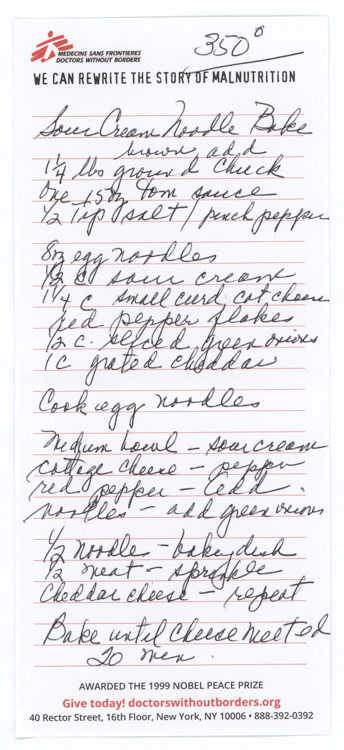 MEDECINS SANS FRONTIERES
DOCTORS WITHOUT BORDERS
350°
WE CAN REWRITE THE STORY OF MALNUTRITION
Sour Cream Noodle Bake
brown, add
1 1/4 lbs ground chuck
One 15 oz tom sauce
1/2 tsp salt / pinch pepper
8 oz egg noodles
1/2 c sour cream
1 1/4 c small curd cot cheese
red pepper flakes
1/2 c. sliced green onions
1 c grated cheddar
Cook egg noodles
Medium bowl - sour cream
cottage cheese - pepper
red pepper - add
noodles - add green onions
1/2 noodles - bake dish
1/2 meat - sprinkle
Cheddar cheese - repeat
Bake until cheese melted
20 min.
AWARDED THE 1999 NOBEL PEACE PRIZE
Give today! doctorswithoutborders.org
40 Rector Street, 16th Floor, New York, NY 10006 • 888-392-0392